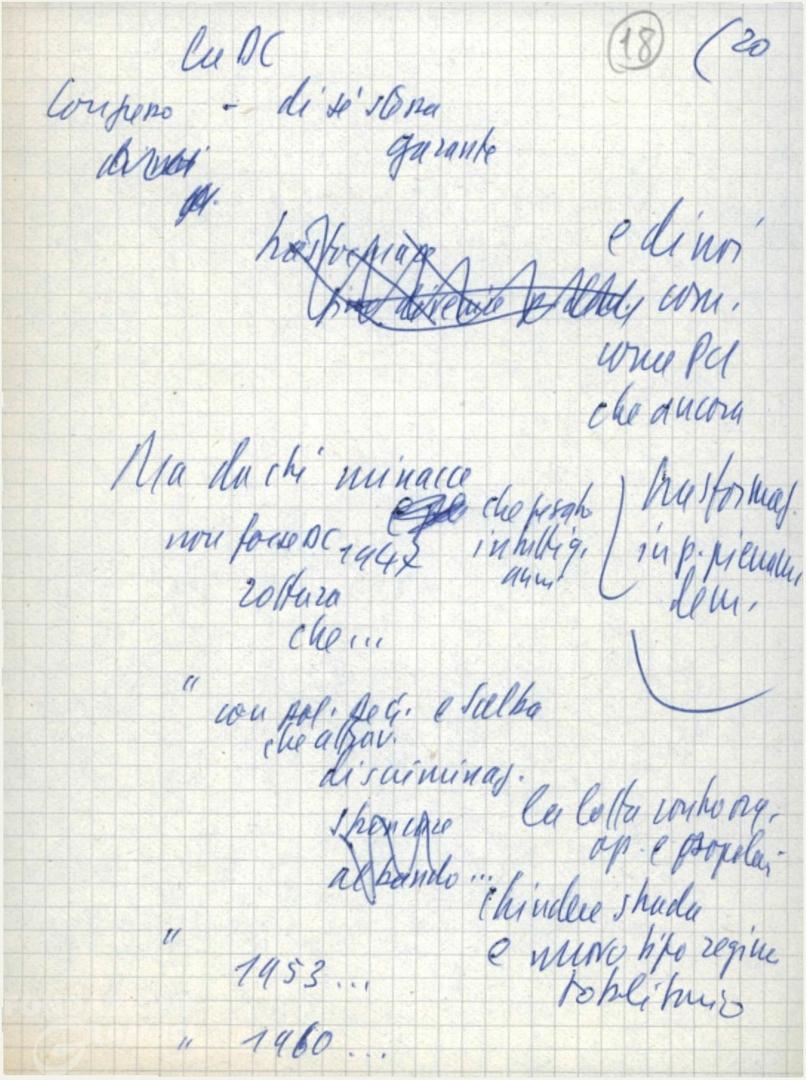 18 (20
La DC
Congresso - di sé stessa
garante
e di noi
com.
come PCI
che ancora
trasformaz.
in p. pienam.
dem.
Ma da chi minacce
che pesato
non forse DC 1947 in tutti gli
anni
rottura
che...
" con pol. e Scelba
che attrav.
discriminaz.
stroncare
al bando...
la lotta contro org.
op. e popolari
chiudere strada
e nuovo tipo regime
totalitario
" 1953...
" 1960...